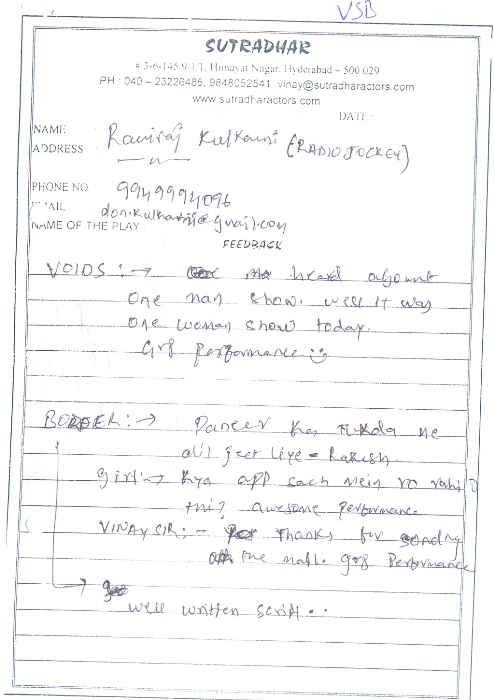 VSB
SUTRADHAR
# 3-6-145/9/1/1, Himayat Nagar, Hyderabad – 500 029
PH : 040 – 23226485, 9848052541 vinay@sutradharactors.com
www.sutradharactors.com
DATE :
NAME Raviraj Kulkarni (RADIO JOCKEY)
ADDRESS
PHONE NO. 9949994096
EMAIL don.kulkarni@gmail.com
NAME OF THE PLAY
FEEDBACK
VOIDS :→ heard about
One man show. well it was
One woman show today.
Gr8 performance
BORDER :→ Paneer ka Tukda ne
dil jeet liye = Rakesh.
Girl :→ Kya app sach mein ro rahi
thi? awesome performance
VINAY SIR :- Thanks for sending
me mail. gr8 Performance
well written script ..